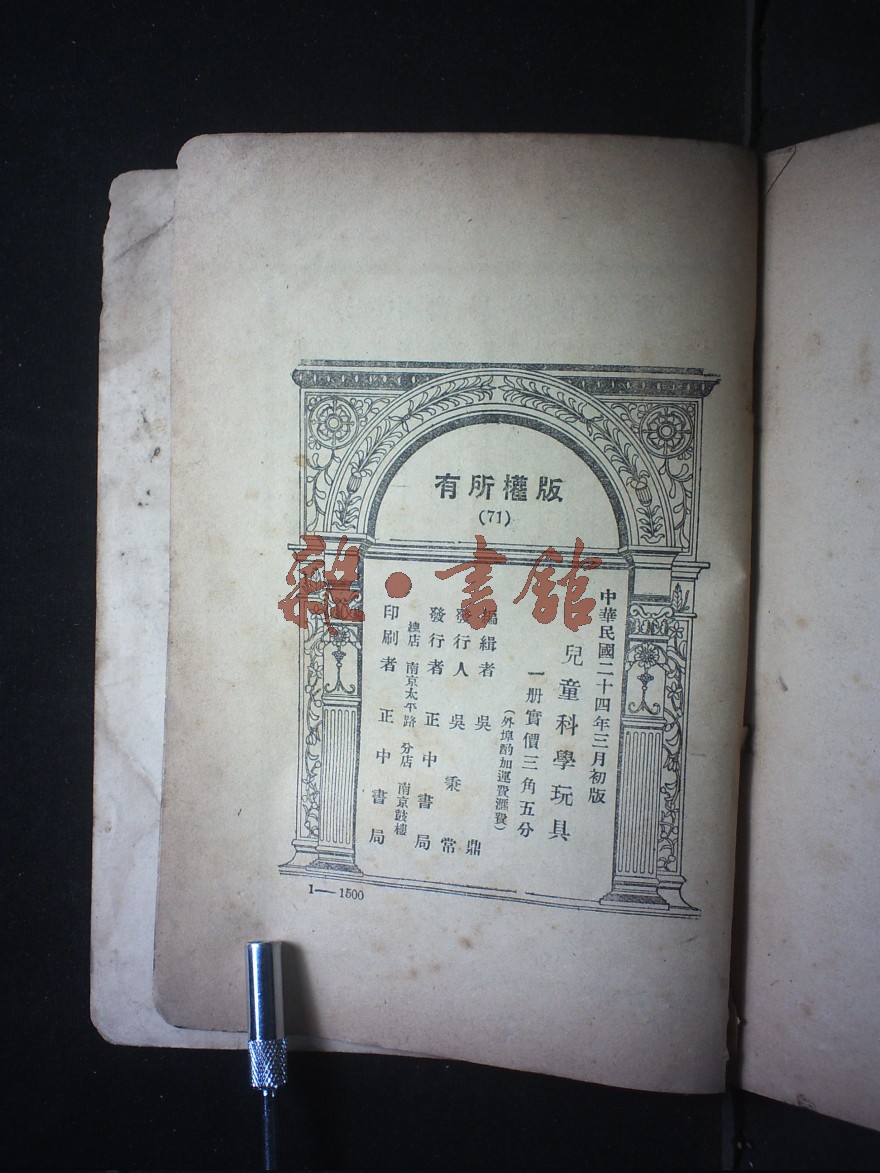 版權所有
(71)
中華民國二十四年三月初版
兒童科學玩具
一册實價三角五分
(外埠酌加運費滙費)
編緝者 吳 鼎
發行人 吳秉常
發行者 正中書局
總店 南京太平路 分店 南京鼓樓
印刷者 正中書局
1—1500
雜·書館